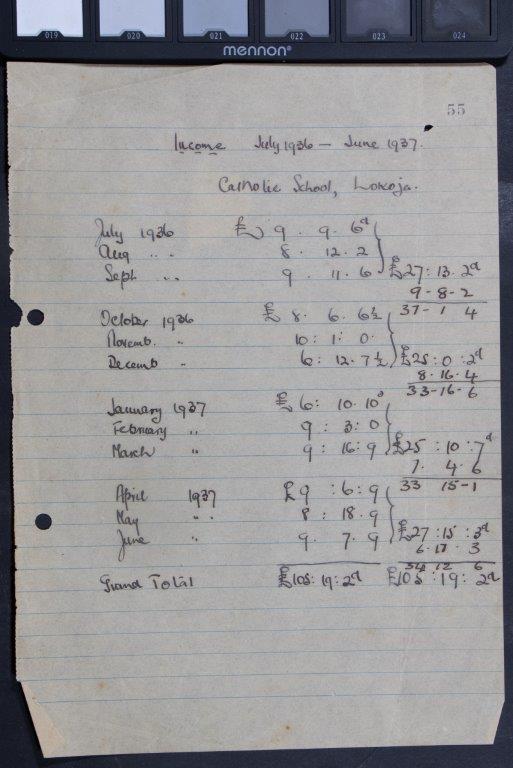 019 020 021 022 023 024
mennon®
55
Income July 1936 — June 1937.
Catholic School, Lokoja.
July 1936 £ 9 . 9 . 6d
Aug " " 8 . 12 . 2
Sept " " 9 . 11 . 6 £27 : 13 . 2d
9 - 8 - 2
37 - 1 4
October 1936 £ 8 . 6 . 6½
Novemb. " 10 : 1 : 0 .
Decemb " 6 : 12 . 7½ £25 : 0 : 2d
8 . 16 . 4
33 - 16 - 6
January 1937 £ 6 : 10 . 10d
February " 9 : 3 : 0
March " 9 : 16 : 9 £25 : 10 : 7d
7 . 4 . 6
33 15 - 1
April 1937 £ 9 : 6 : 9
May " " 8 : 18 . 9
June " 9 . 7 . 9 £27 : 15 : 3d
6 . 17 . 3
34 12 6
Grand Total £105 : 19 : 2d £105 : 19 : 2d